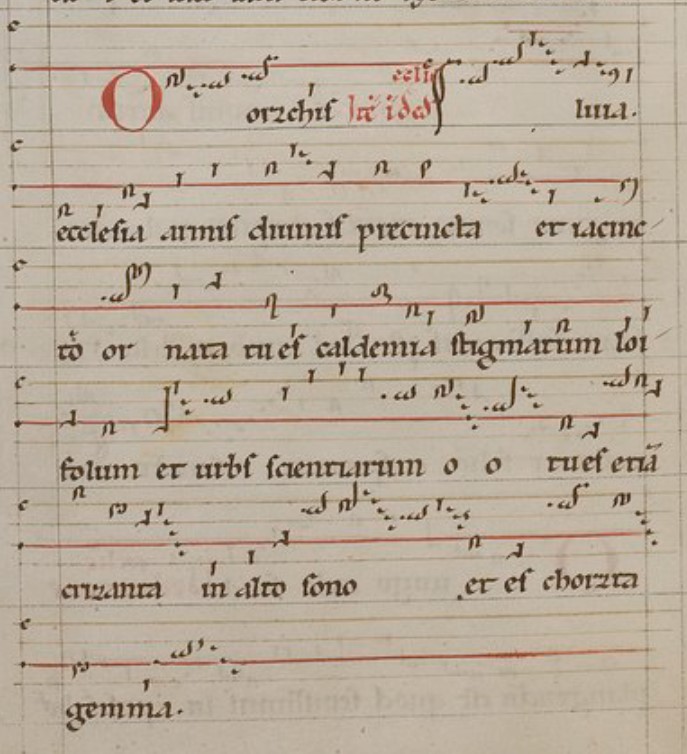 O orzchis luia.
ecclesia armis diuinis precincta et iacinc
to or nata tu es caldemia stigmatum loi
folum et urbs scientiarum o o tu es etiā
crizanta in alto sono et es chorzta
gemma.